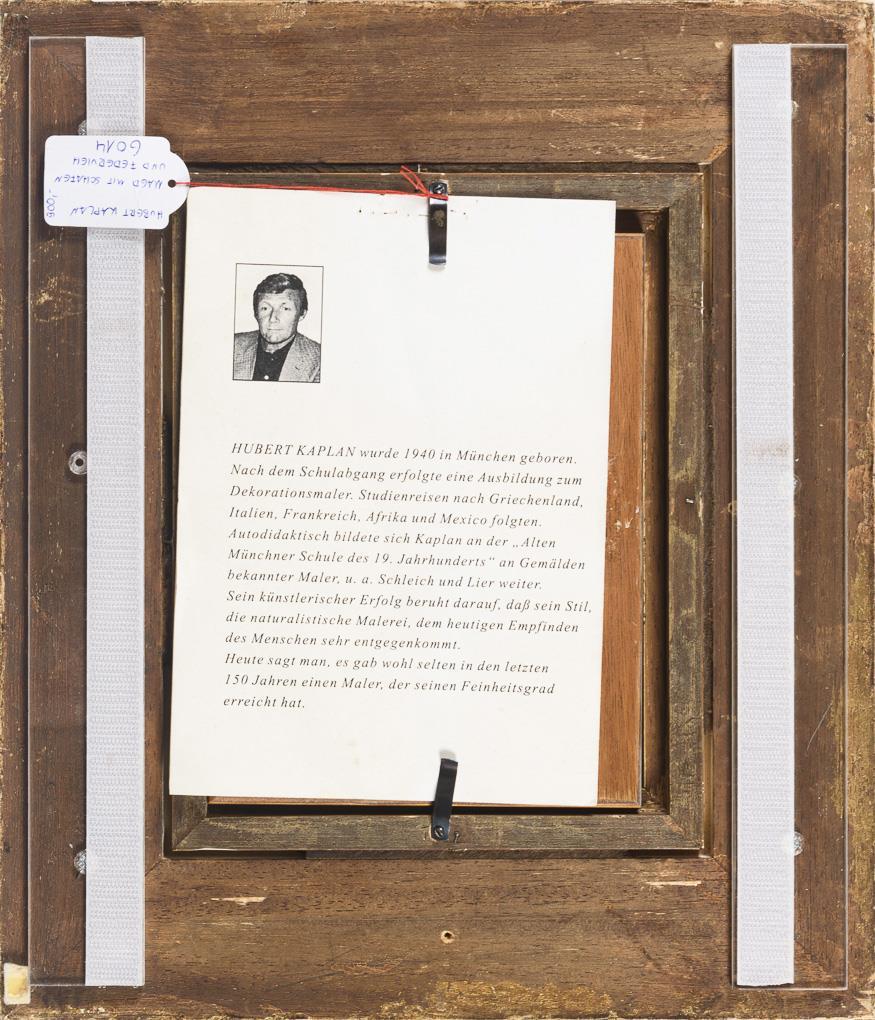 HUBERT KAPLAN
MAGD MIT SCHAFEN
UND FEDERVIEH
6014
HUBERT KAPLAN wurde 1940 in München geboren.
Nach dem Schulabgang erfolgte eine Ausbildung zum
Dekorationsmaler. Studienreisen nach Griechenland,
Italien, Frankreich, Afrika und Mexico folgten.
Autodidaktisch bildete sich Kaplan an der „Alten
Münchner Schule des 19. Jahrhunderts“ an Gemälden
bekannter Maler, u. a. Schleich und Lier weiter.
Sein künstlerischer Erfolg beruht darauf, daß sein Stil,
die naturalistische Malerei, dem heutigen Empfinden
des Menschen sehr entgegenkommt.
Heute sagt man, es gab wohl selten in den letzten
150 Jahren einen Maler, der seinen Feinheitsgrad
erreicht hat.